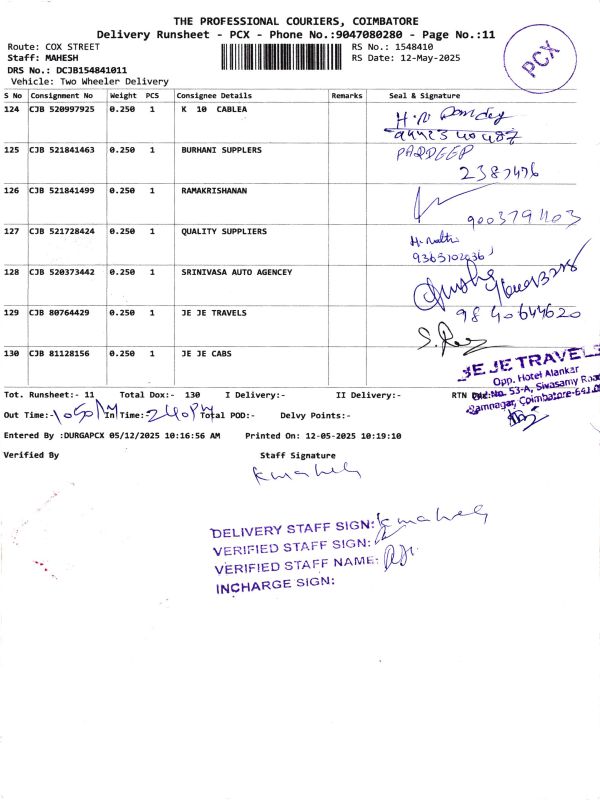 THE PROFESSIONAL COURIERS, COIMBATORE
Delivery Runsheet - PCX - Phone No.:9047080280 - Page No.:11
Route: COX STREET
RS No.: 1548410
Staff: MAHESH
RS Date: 12-May-2025
DRS No.: DCJB154841011
Vehicle: Two Wheeler Delivery
PCX
S No Consignment No Weight PCS Consignee Details Remarks Seal & Signature
124 CJB 520997925 0.250 1 K 10 CABLEA
125 CJB 521841463 0.250 1 BURHANI SUPPLERS PARDEEP
126 CJB 521841499 0.250 1 RAMAKRISHANAN
9003791103
127 CJB 521728424 0.250 1 QUALITY SUPPLIERS
128 CJB 520373442 0.250 1 SRINIVASA AUTO AGENCEY
129 CJB 80764429 0.250 1 JE JE TRAVELS 9840644620
130 CJB 81128156 0.250 1 JE JE CABS
JE JE TRAVELS
Opp. Hotel Alankar
53-A, Sivasamy Road
Ramnagar, Coimbatore-641
Tot. Runsheet:- 11 Total Dox:- 130 I Delivery:- II Delivery:- RTN
Out Time:- 1050 AM In Time:- 240 PM Total POD:- Delvy Points:-
Entered By :DURGAPCX 05/12/2025 10:16:56 AM Printed On: 12-05-2025 10:19:10
Verified By Staff Signature
K mahesh
DELIVERY STAFF SIGN: K mahesh
VERIFIED STAFF SIGN:
VERIFIED STAFF NAME:
INCHARGE SIGN: